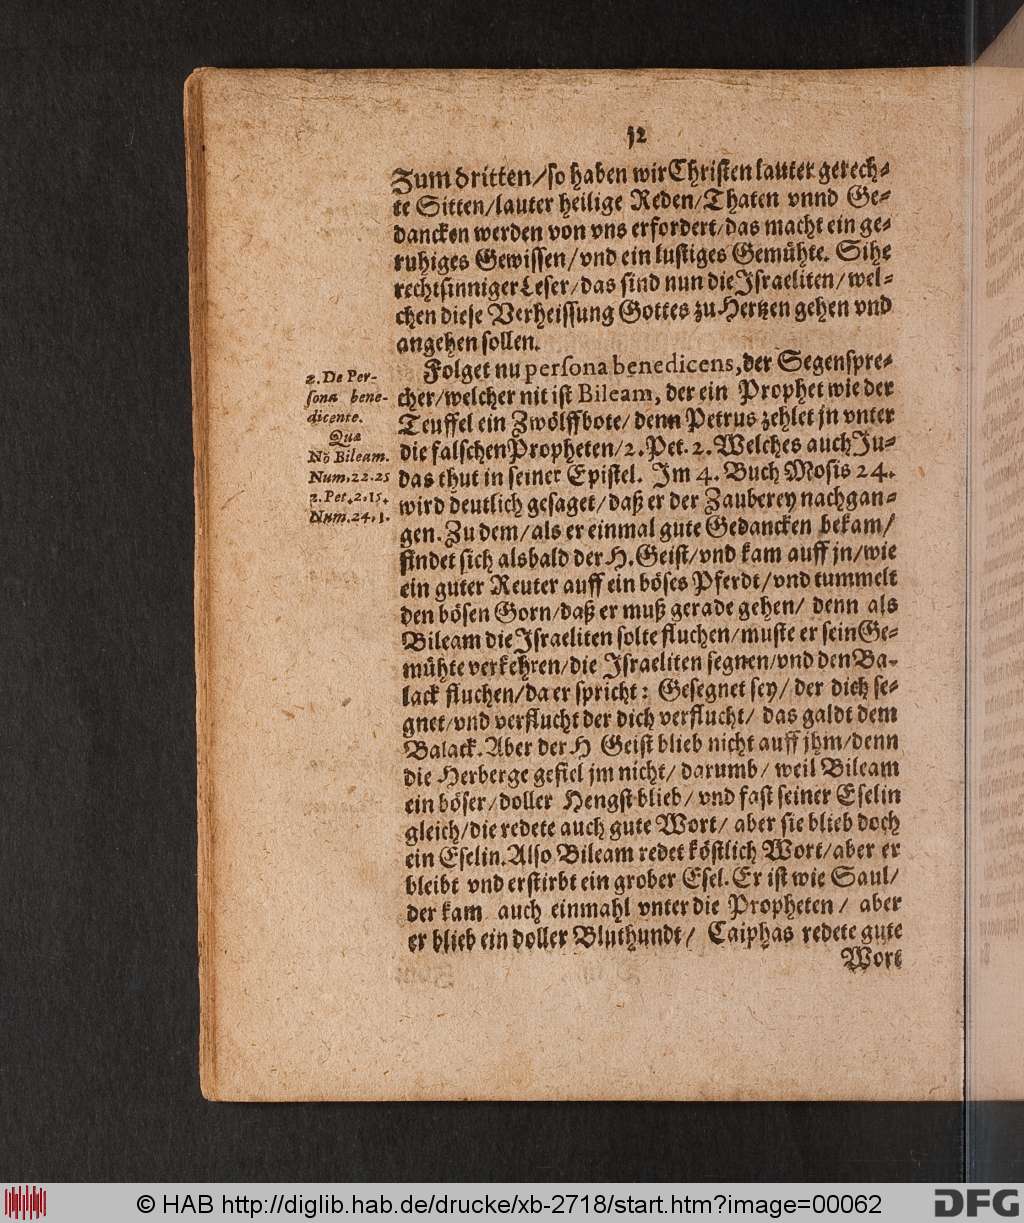 52
Zum dritten/so haben wir Christen lauter gerech-
te Sitten/lauter heilige Reden/Thaten vnnd Ge-
dancken werden von vns erfordert/das macht ein ge-
ruhiges Gewissen/vnd ein lustiges Gemühte. Sihe
rechtsinniger Leser/das sind nun die Israeliten/wel-
chen diese Verheissung Gottes zu Hertzen gehen vnd
angehen sollen.
Folget nu persona benedicens, der Segenspre-
cher/welcher nit ist Bileam, der ein Prophet wie der
Teuffel ein Zwölffbote/denn Petrus zehlet jn vnter
die falschen Propheten/2. Pet. 2. Welches auch Ju-
das thut in seiner Epistel. Im 4. Buch Mosis 24.
wird deutlich gesaget/daß er der Zauberey nachgan-
gen. Zu dem/als er einmal gute Gedancken bekam/
findet sich alsbald der H. Geist/vnd kam auff jn/wie
ein guter Reuter auff ein böses Pferdt/vnd tummelt
den bösen Gorn/daß er muß gerade gehen/ denn als
Bileam die Israeliten solte fluchen/muste er sein Ge-
mühte verkehren/die Israeliten segnen/vnd den Ba-
lack fluchen/da er spricht: Gesegnet sey/ der dich se-
gnet/vnd verflucht der dich verflucht/ das galdt dem
Balack. Aber der H Geist blieb nicht auff jhm/denn
die Herberge gefiel jm nicht/ darumb/ weil Bileam
ein böser/doller Hengst blieb/ vnd fast seiner Eselin
gleich/die redete auch gute Wort/ aber sie blieb doch
ein Eselin. Also Bileam redet köstlich Wort/aber er
bleibt vnd erstirbt ein grober Esel. Er ist wie Saul/
der kam auch einmahl vnter die Propheten/ aber
er blieb ein doller Bluthundt/ Caiphas redete gute
Wort
2. De Per-
sona bene-
dicente.
Quæ
Nō Bileam.
Num. 22. 25
2. Pet. 2, 15.
Num. 24, 1.
© HAB http://diglib.hab.de/drucke/xb-2718/start.htm?image=00062
DFG